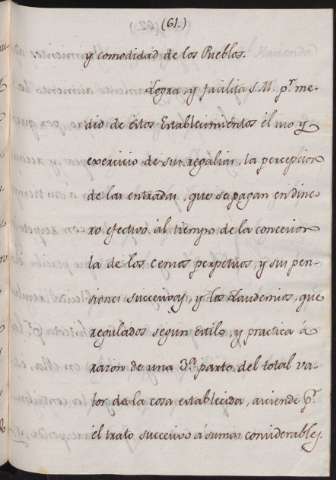 (61.)
y comodidad de los Pueblos.
Logra, y facilita S.M. pr. me-
dio de estos establecimientos el uso y
exercicio de sus regalias, la percepcion
de las entradas, que se pagan en dine-
ro efectivo al tiempo de la concesion
la de los censos perpetuos, y sus pen-
siones successivas, y los Laudemios, que
regulados segun estilo, y practica á
razon de una 3ª parte del total va-
lor de la cosa establecida, asciende pr.
el trato successivo á sumas considerables,